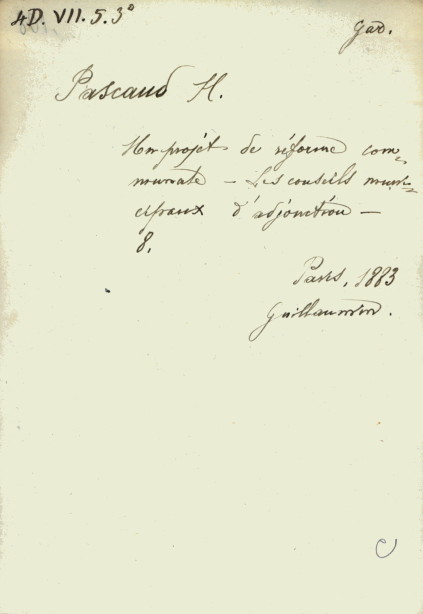 4D. VII. 5. 3°
Gad.
Pascaud H.
Un projét de réforme com=
munale — Les conseils muni=
cipaux d'adjonction —
8.
Paris, 1883
Guillaumin.